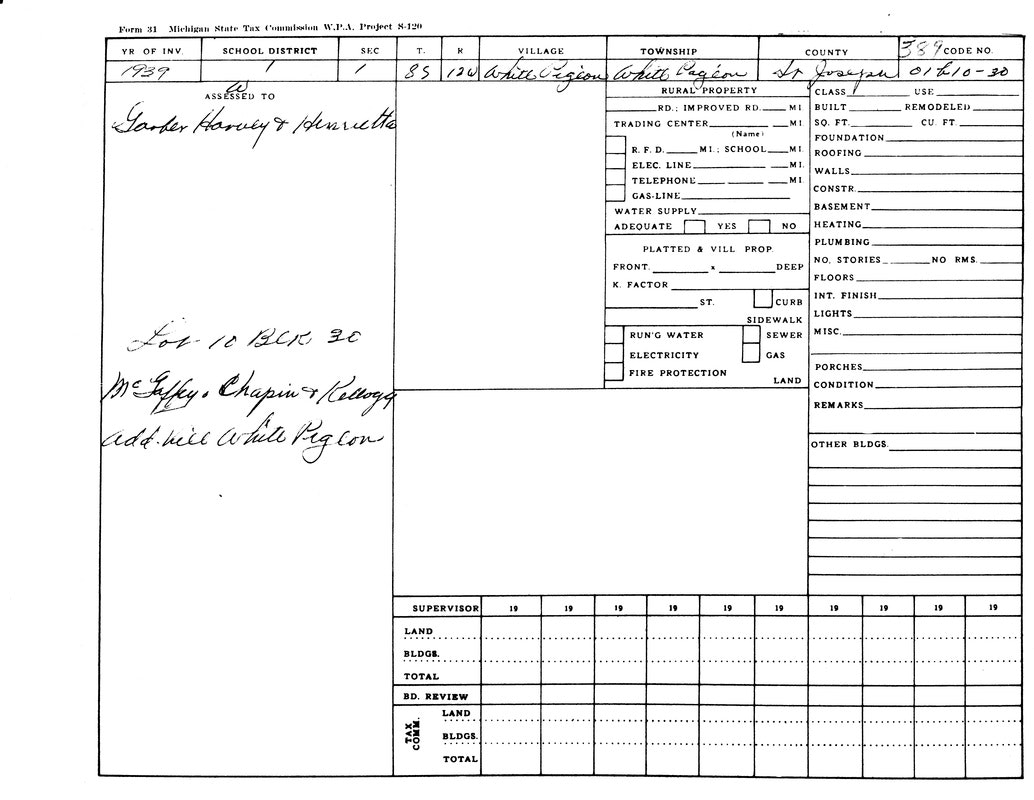 Form 31 Michigan State Tax Commission W.P.A. Project S-120
YR OF INV. SCHOOL DISTRICT SEC T. R VILLAGE TOWNSHIP COUNTY 389 CODE NO.
1939 1 1 8S 12W White Pigeon White Pageon St Joseph 01
W
ASSESSED TO
Garber Harvey & Henrietta
Lot 10 BLK 30
McGaffey, Chapin & Kellogg
Add. vill White Pigeon
RURAL PROPERTY
RD.; IMPROVED RD. MI
TRADING CENTER MI.
(Name)
R. F. D. MI.; SCHOOL MI.
ELEC. LINE MI.
TELEPHONE MI.
GAS-LINE
WATER SUPPLY
ADEQUATE YES NO
PLATTED & VILL PROP.
FRONT. x DEEP
K. FACTOR
ST. CURB
SIDEWALK
RUN'G WATER SEWER
ELECTRICITY GAS
FIRE PROTECTION
LAND
CLASS USE
BUILT REMODELED
SQ. FT. CU. FT.
FOUNDATION
ROOFING
WALLS
CONSTR.
BASEMENT
HEATING
PLUMBING
NO. STORIES NO RMS.
FLOORS
INT. FINISH
LIGHTS
MISC.
PORCHES
CONDITION
REMARKS
OTHER BLDGS.
SUPERVISOR 19 19 19 19 19 19 19 19 19 19
LAND
BLDGS.
TOTAL
BD. REVIEW
TAX COMM.
LAND
BLDGS.
TOTAL